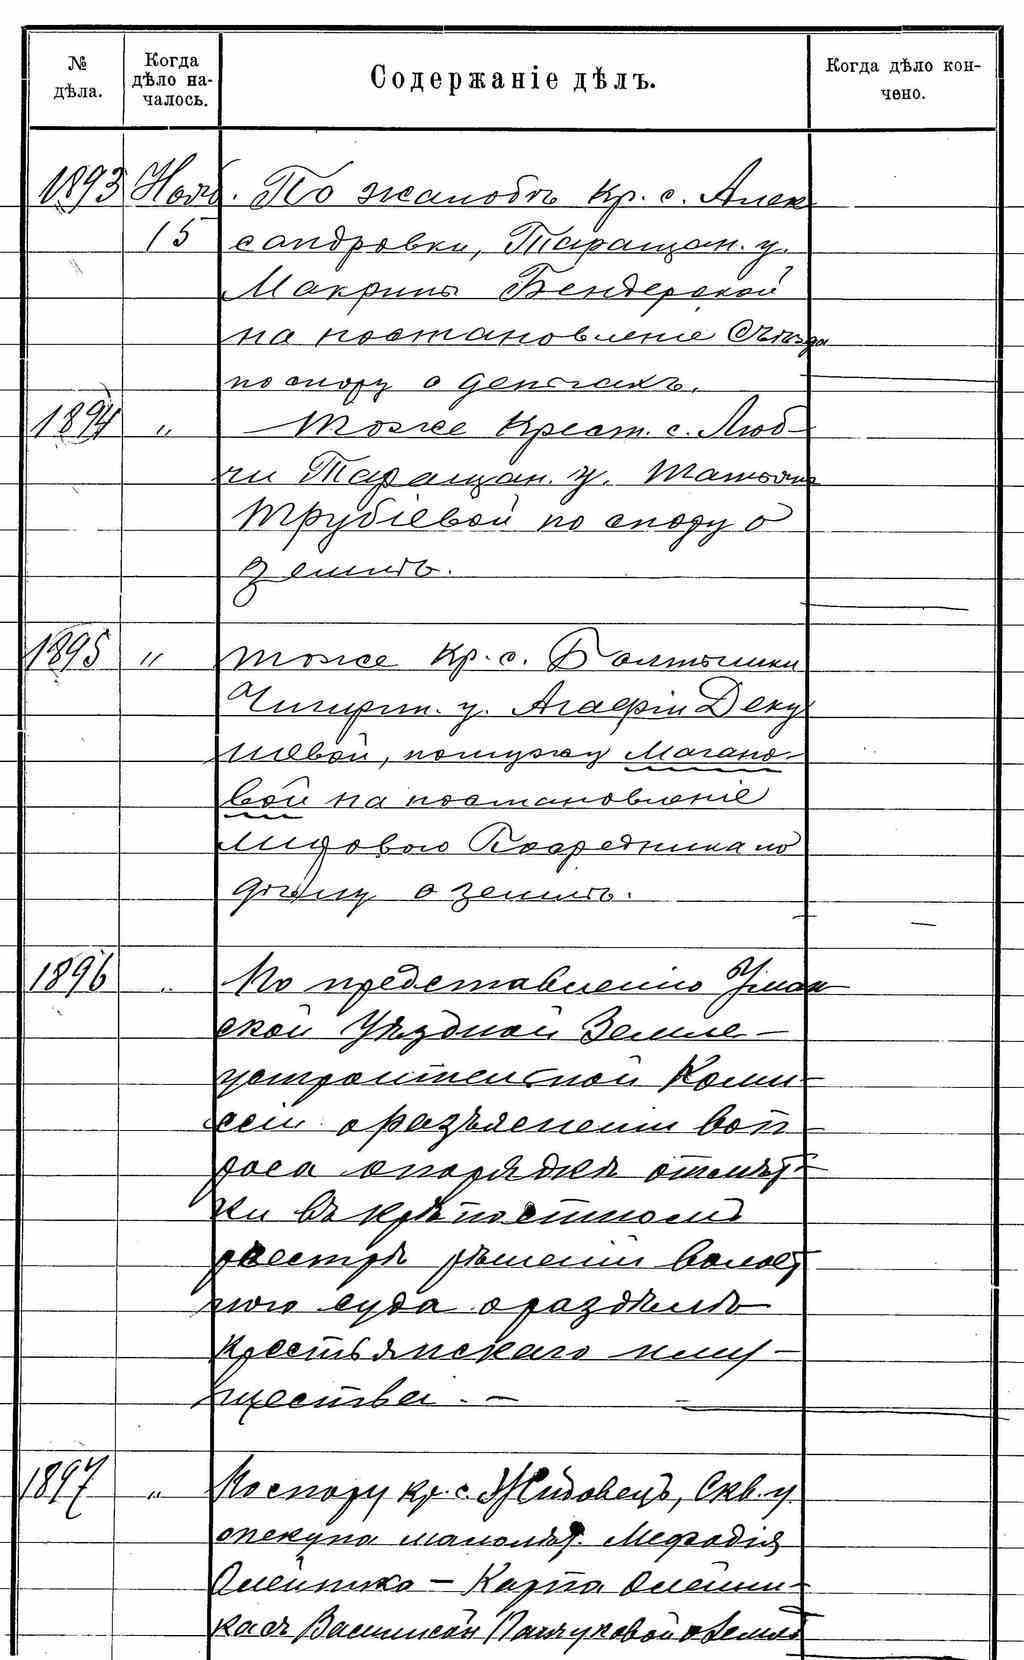 № дѣла.
Когда дѣло на-
чалось.
Содержаніе дѣлъ.
Когда дѣло кон-
чено.
1893 Нояб. По жалобѣ кр. с. Алек
15 сандровки, Таращан. у.
Макрины Бендерской
на постановленіе Съѣзда
по спору о деньгахъ.
1894 „ Тоже крест. с. Люб-
чи Таращан. у. Татьяны
Трубіевой по спору о
землѣ.
1895 „ тоже кр. с. Болтышки
Чигирин. у. Агафіи Деку
шевой, помужу Магано-
вой на постановленіе
Мирового Посредника по
дѣлу о землѣ.
1896 „ По представленію Уман
ской Уѣздной Земле-
устроительной Коми-
ссіи о разъясненіи воп-
роса о порядкѣ отмѣт-
ки въ крѣпостномъ
реестрѣ рѣшеній волост
ного суда о раздѣлѣ
крестьянскаго иму-
щества. —
1897 „ По спору кр. с. Жидовецъ, Скв. у
опекуна малолѣт. Мефодія
Олейника — Карпа Олейни-
ка съ Василисой о землѣ